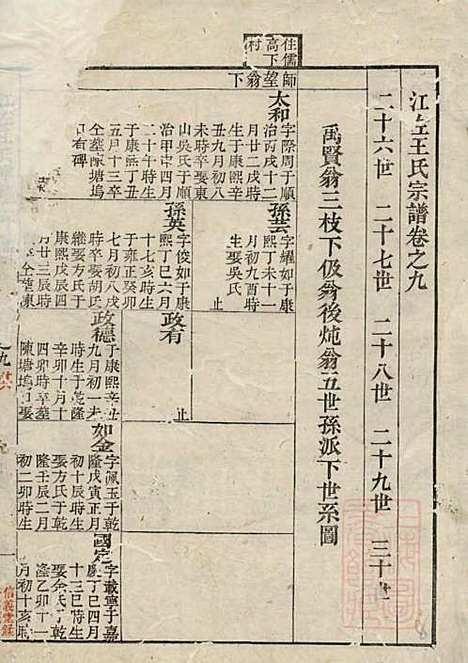 江左王氏宗譜卷之九
二十六世 二十七世 二十八世 二十九世 三十世
禹賢翁三枝下伋翁後炖翁五世孫派下世系圖
住儒
高下
村
師望翁下
太和
字際周于順
治丙戌十二
月廿二戌時
生于康熙辛
丑九月初八
未時卒娶東
山吳氏于順
治甲申四月
二十午時生
于康熙丁丑
五月十三卒
仝塟陳塘塢
有碑
孫芸
字耀如于康
熙丁未十一
月初九酉時
生娶吳氏
止
孫英
字俊如于康
熙丁巳六月
十七亥時生
于雍正癸卯
七月初八戌
時卒娶胡氏
繼娶方氏于
康熙戊辰四
月廿三辰時
生仝塟東
政有
止
政德
于康熙辛丑
九月初一未
時生于乾隆
辛卯十月十
四卯時卒塟
陳塘塢娶
如金
字佩玉于乾
隆戊寅正月
初十辰時生
娶方氏于乾
隆壬辰二月
初二卯時生
國定
字載寧于嘉
慶丁巳四月
十三巳時生
娶余氏于乾
隆乙卯十一
月初十亥時
九
信義堂錄